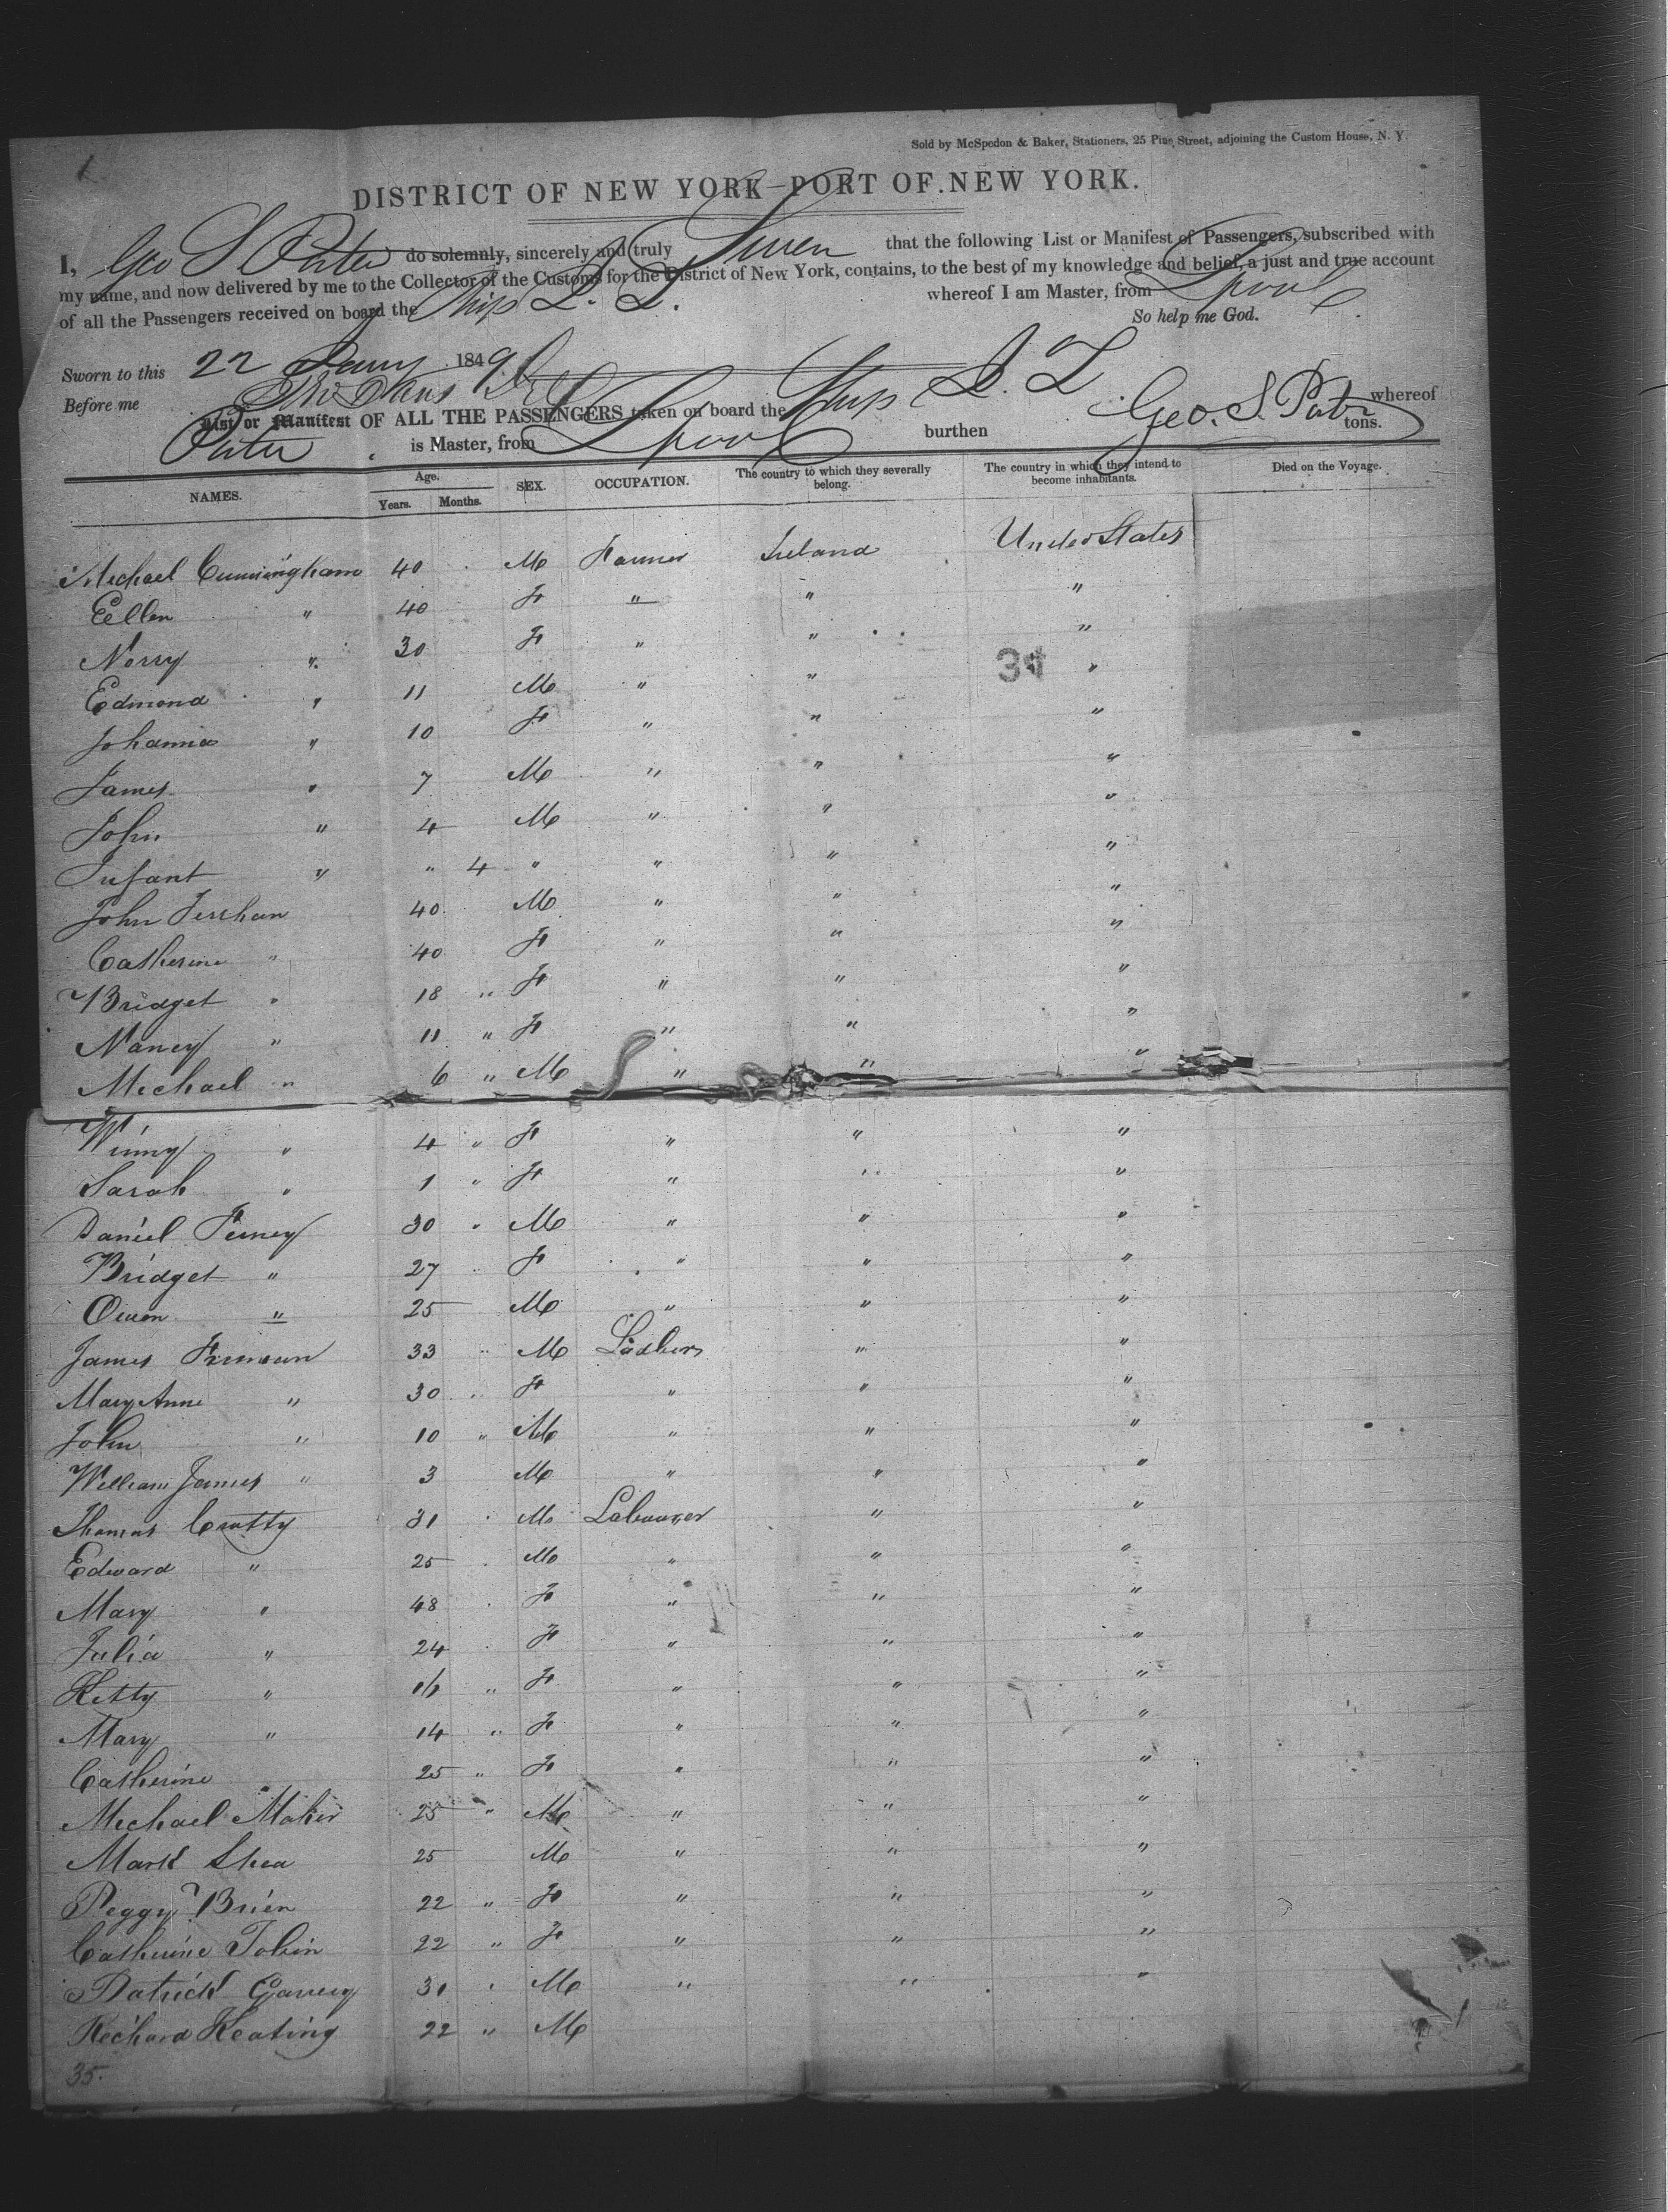 1
Sold by McSpedon & Baker, Stationers, 25 Pine Street, adjoining the Custom House, N. Y.
DISTRICT OF NEW YORK—PORT OF NEW YORK.
I, Geo S Porter do solemnly, sincerely and truly Swear that the following List or Manifest of Passengers, subscribed with
my name, and now delivered by me to the Collector of the Customs for the District of New York, contains, to the best of my knowledge and belief, a just and true account
of all the Passengers received on board the Ship L. Z. whereof I am Master, from Lpool
So help me God.
Sworn to this 22 Jany 1849
Before me
Geo. S. Porter
List or Manifest OF ALL THE PASSENGERS taken on board the Ship L. Z whereof
Porter is Master, from Lpool burthen tons.
NAMES. Age. Years. Months. SEX. OCCUPATION. The country to which they severally belong. The country in which they intend to become inhabitants. Died on the Voyage.
Michael Cunningham 40 M Farmer Ireland United States
Ellen " 40 F " " "
Norry " 30 F " " "
Edmond " 11 M " " "
Johanna " 10 F " " "
James " 7 M " " "
John " 4 M " " "
Infant " " 4 " " " "
John 40 M " " "
Catherine " 40 F " " "
Bridget " 18 " F " " "
Nancy " 11 " F " " "
Michael " 6 " M " " "
Winny " 4 " F " " "
Sarah " 1 " F " " "
Daniel 30 " M " " "
Bridget " 27 " F " " "
Owen " 25 M " " "
James 33 " M " "
Mary Anne " 30 " F " " "
John " 10 " M " " "
William James " 3 M " " "
Thomas Crotty 31 " M Labourer " "
Edward " 25 " M " " "
Mary " 48 " F " " "
Julia " 24 " F " " "
Kitty " F " " "
Mary " 14 " F " " "
Catherine 25 " F " " "
Michael Maher 25 " M " " "
Mark Shea 25 M " " "
Peggy Brien 22 " F " " "
Catherine Tobin 22 " F " " "
Patrick 31 " M " " "
Richard Keating 22 " M
35.